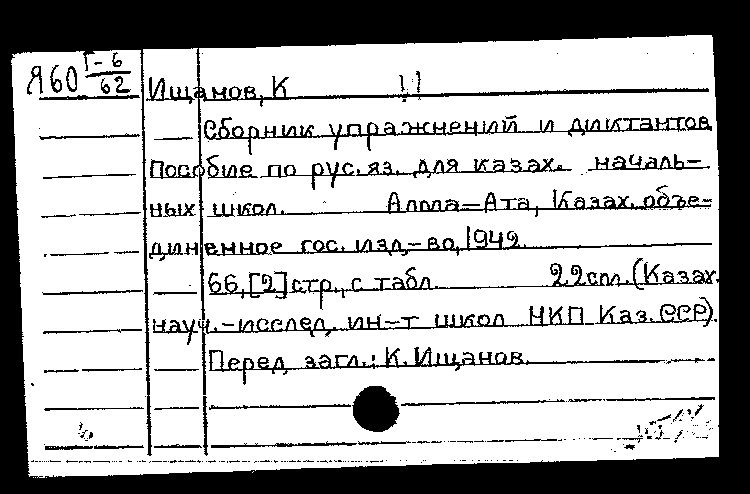 Я60 Г-6/62
Ищанов, К
Сборник упражнений и диктантов
Пособие по рус. яз. для казах. началь-
ных школ. Алма-Ата, Казах. объе-
диненное гос. изд-во, 1942.
66, [2] стр., с табл. 22 см. (Казах.
науч.-исслед. ин-т школ НКП Каз. ССР).
Перед загл.: К. Ищанов.